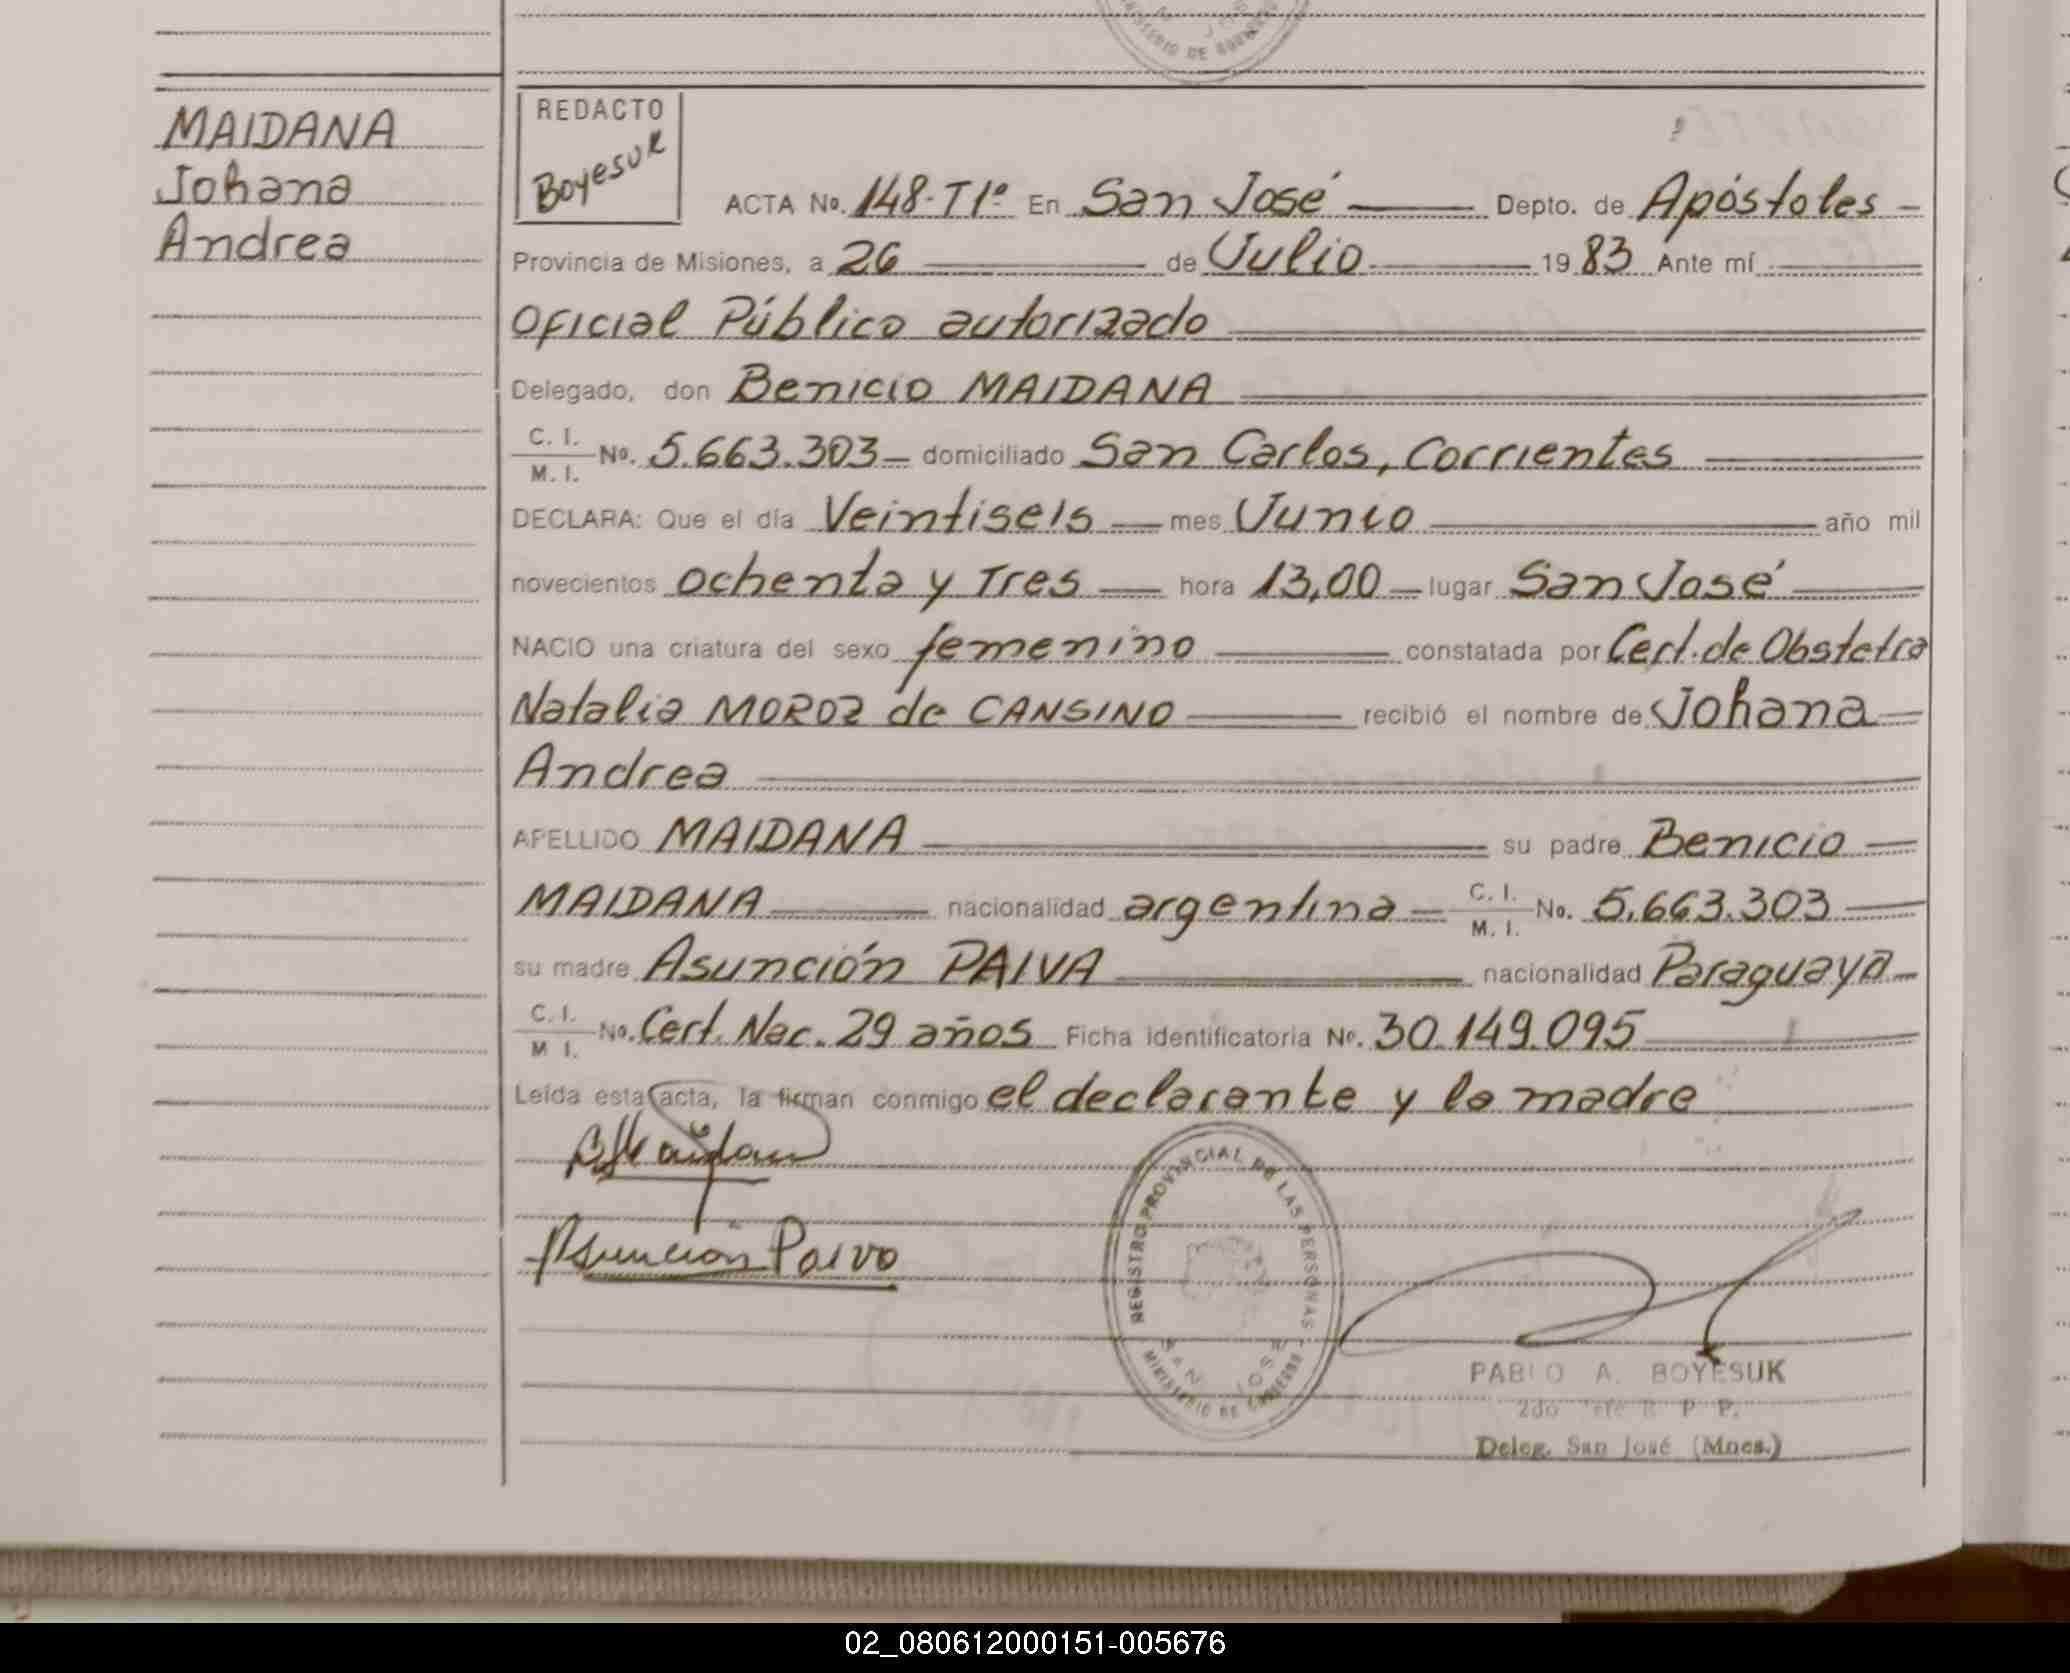 MINISTERIO DE GOBIERNO
MAIDANA
Johana
Andrea
REDACTO
Boyesuk
ACTA No. 148-T1º En San José Depto. de Apóstoles
Provincia de Misiones, a 26 de Julio 1983 Ante mí
Oficial Público autorizado
Delegado, don Benicio MAIDANA
C. I. / M. I. No. 5.663.303 domiciliado San Carlos, Corrientes
DECLARA: Que el día Veintiseis mes Junio año mil
novecientos ochenta y Tres hora 13,00 lugar San José
NACIO una criatura del sexo femenino constatada por Cert. de Obstetra
Natalia MOROZ de CANSINO recibió el nombre de Johana
Andrea
APELLIDO MAIDANA su padre Benicio
MAIDANA nacionalidad argentina C. I. / M. I. No. 5.663.303
su madre Asunción PAIVA nacionalidad Paraguaya
C. I. / M I. No. Cert. Nac. 29 años Ficha identificatoria No. 30.149.095
Leída esta acta, la firman conmigo el declarante y la madre
Asunción Paiva
REGISTRO PROVINCIAL DE LAS PERSONAS
SAN JOSE
MINISTERIO DE GOBIERNO
PABLO A. BOYESUK
2do Jefe R. P. P.
Deleg. San José (Mnes.)
02_080612000151-005676